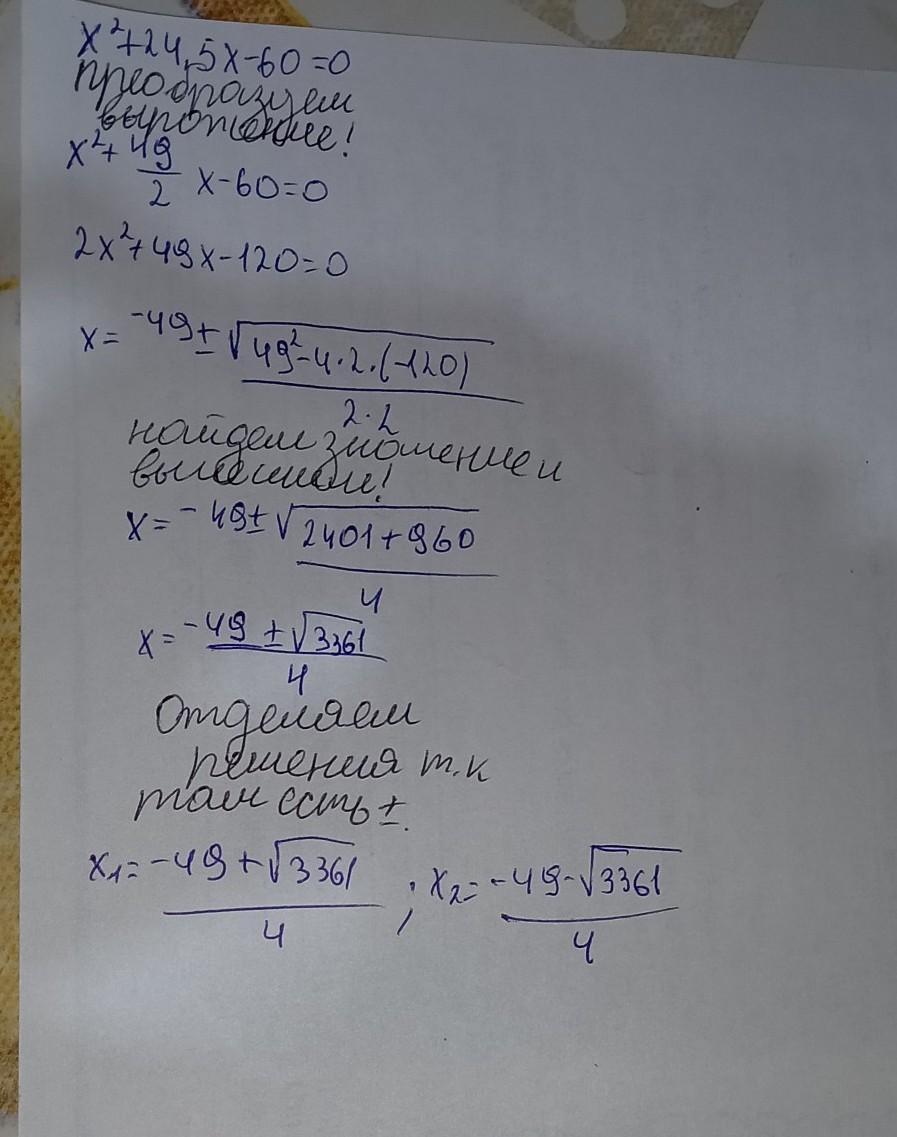 x²+24,5x-60=0
преобразуем
выражение!
x²+ 49/2 x-60=0
2x²+49x-120=0
x= -49±√49²-4·2·(-120) / 2·2
найдем значение и
x= -49±√2401+960 / 4
x= -49±√3361 / 4
Отделяем
решения т.к
там есть ±.
x₁= -49+√3361 / 4 ; x₂= -49-√3361 / 4